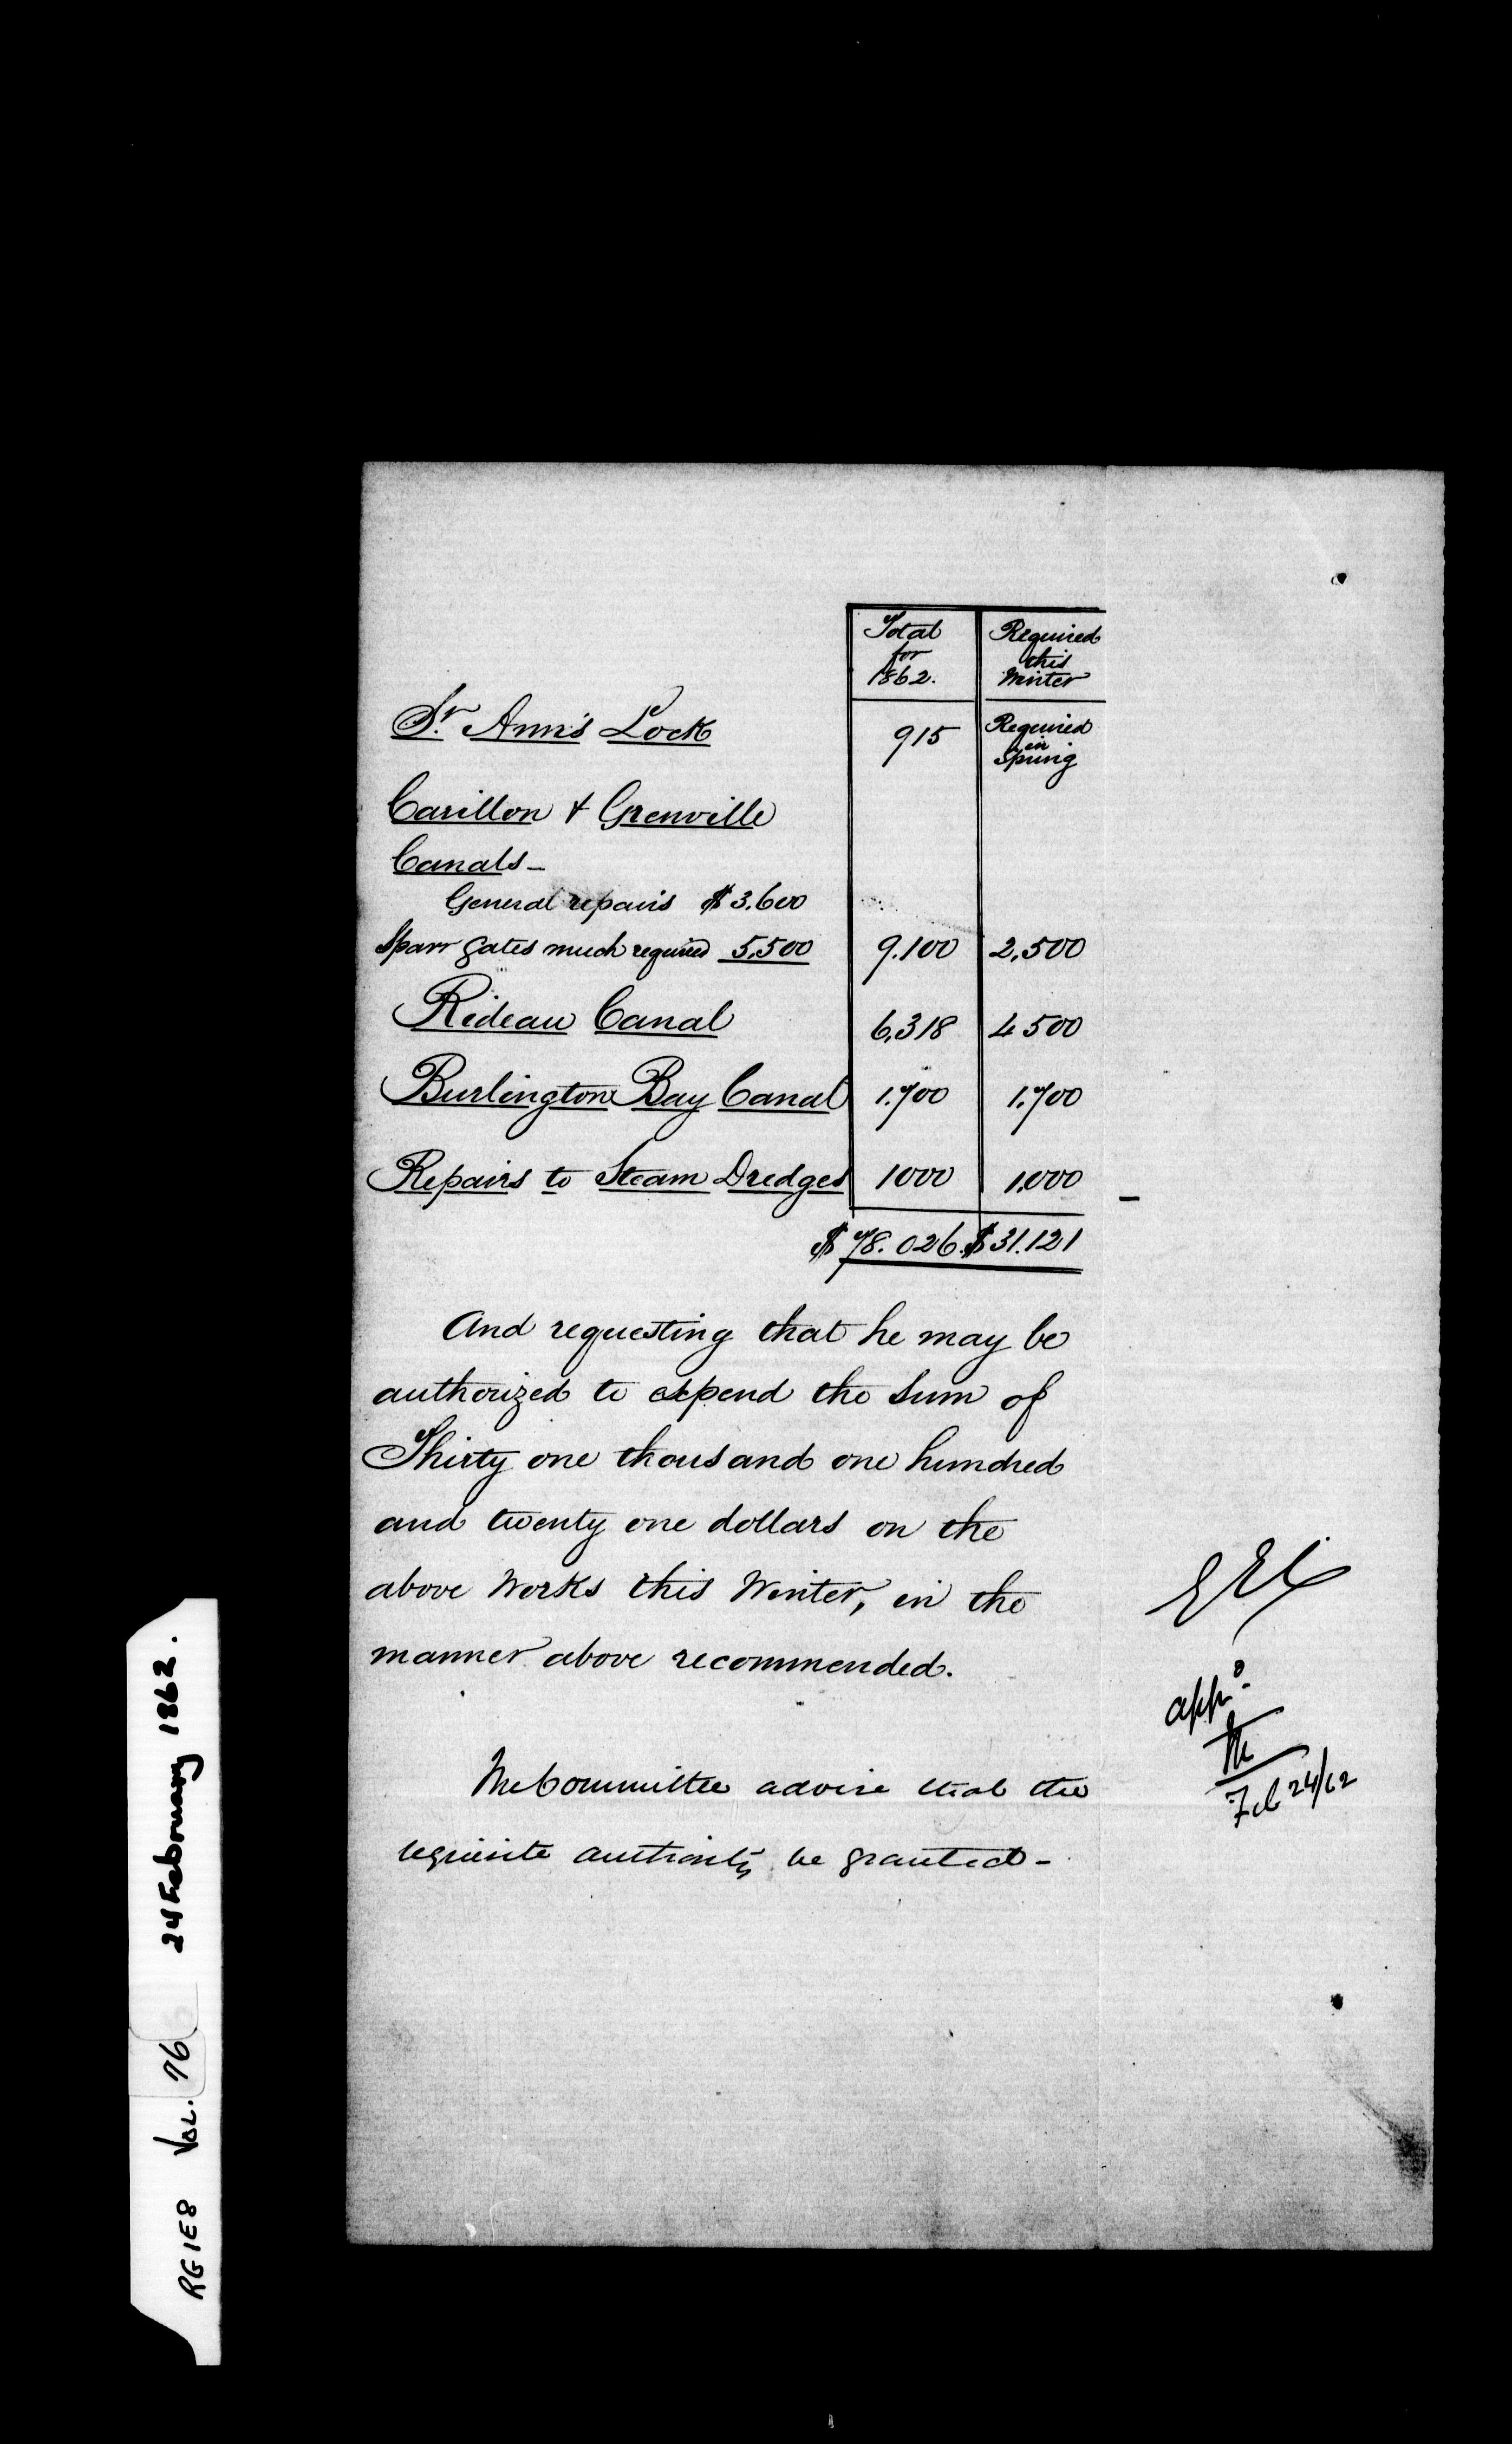 Total for 1862. Required this Winter
St. Ann's Lock 915 Required in Spring
Carillon & Grenville
Canals -
General repairs $3.600
Sparr gates much required 5,500 9.100 2,500
Rideau Canal 6,318 4500
Burlington Bay Canal 1.700 1.700
Repairs to Steam Dredges 1000 1,000
$78.026 $31.121
And requesting that he may be
authorized to expend the Sum of
Thirty one thousand one hundred
and twenty one dollars on the
above Works this Winter, in the
manner above recommended.
The Committee advise that the
requisite authority be granted -
appd.
M
Feb 24/62
RG1E8 VOL. 76 24 February 1862.